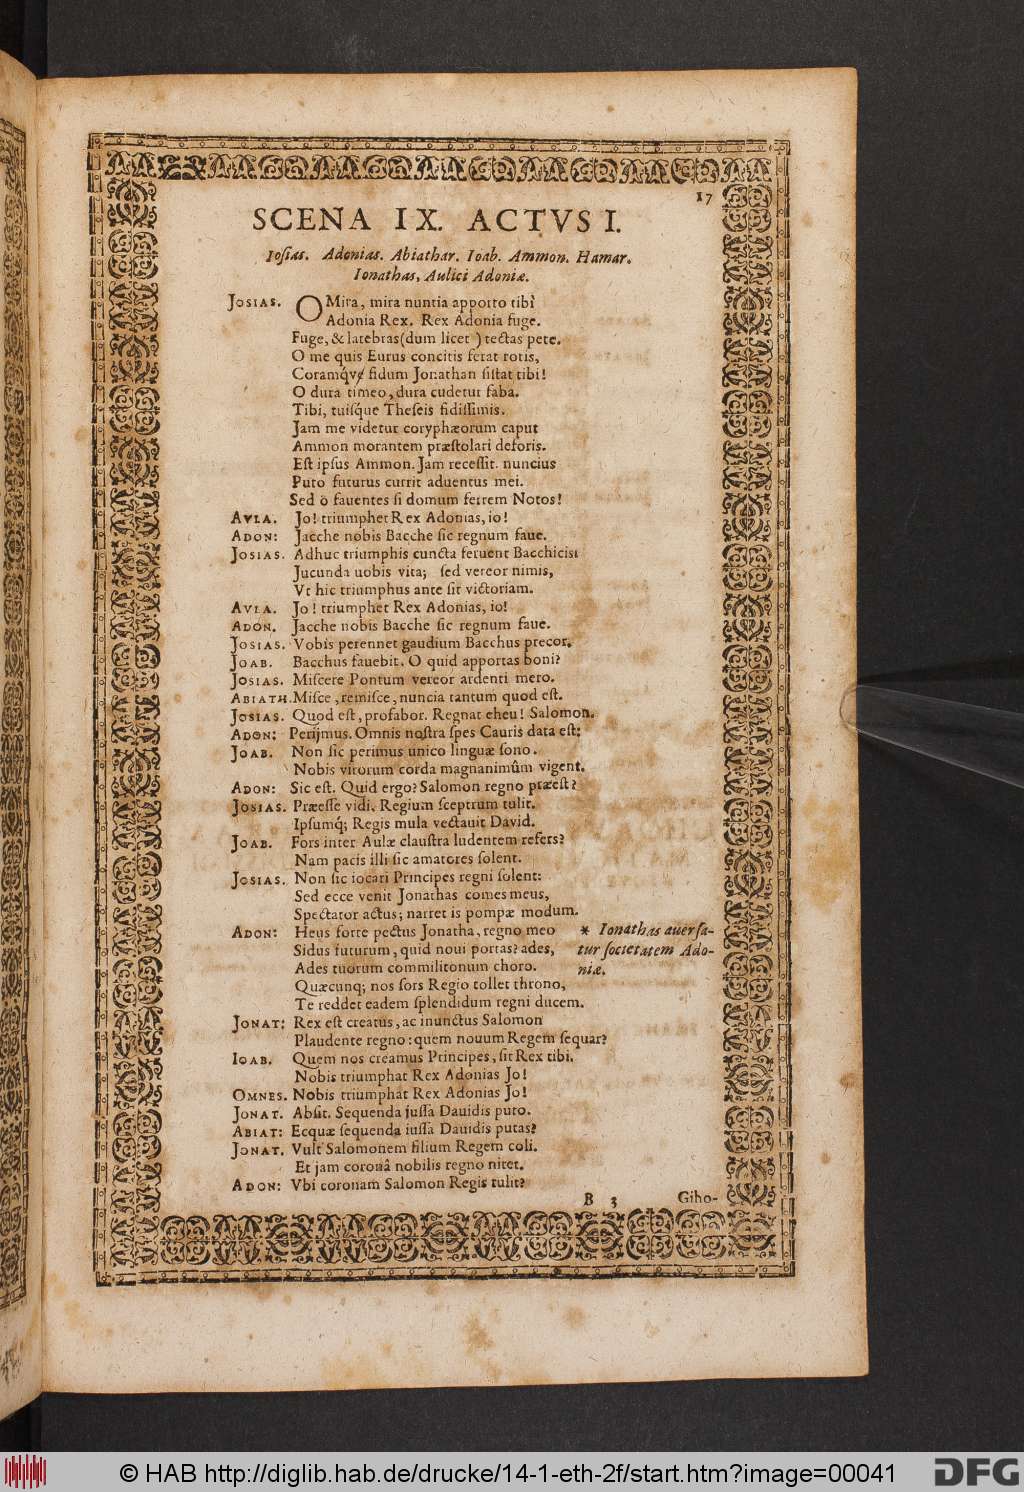 17
SCENA IX. ACTVS I.
Iosias. Adonias. Abiathar. Ioab. Ammon. Hamar.
Ionathas, Aulici Adoniæ.
JOSIAS. O Mira, mira nuntia apporto tibi
Adonia Rex. Rex Adonia fuge.
Fuge, & latebras (dum licet) tectas pete.
O me quis Eurus concitis ferat rotis,
Coramq́ve fidum Jonathan sistat tibi!
O dura timeo, dura cudetur faba.
Tibi, tuisque Theseis fidissimis.
Jam me videtur coryphæorum caput
Ammon morantem præstolari deforis.
Est ipsus Ammon. Jam recessit. nuncius
Puto futurus currit aduentus mei.
Sed ô fauentes si domum ferrem Notos!
AVLA. Jo! triumphet Rex Adonias, io!
ADON: Jacche nobis Bacche sic regnum faue.
JOSIAS. Adhuc triumphis cuncta feruent Bacchicis:
Jucunda uobis vita; sed vereor nimis,
Vt hic triumphus ante sit victoriam.
AVLA. Jo! triumphet Rex Adonias, io!
ADON. Jacche nobis Bacche sic regnum faue.
JOSIAS. Vobis perennet gaudium Bacchus precor.
JOAB. Bacchus fauebit. O quid apportas boni?
JOSIAS. Miscere Pontum vereor ardenti mero.
ABIATH. Misce, remisce, nuncia tantum quod est.
JOSIAS. Quod est, profabor. Regnat eheu! Salomon.
ADON: Perijmus. Omnis nostra spes Cauris data est:
JOAB. Non sic perimus unico linguæ sono.
Nobis virorum corda magnanimûm vigent.
ADON: Sic est. Quid ergo? Salomon regno præest?
JOSIAS. Præesse vidi. Regium sceptrum tulit.
Ipsumq́; Regis mula vectauit David.
JOAB. Fors inter Aulæ claustra ludentem refers?
Nam pacis illi sic amatores solent.
JOSIAS. Non sic iocari Principes regni solent:
Sed ecce venit Jonathas comes meus,
Spectator actus; narret is pompæ modum.
ADON: Heus forte pectus Jonatha, regno meo
Sidus futurum, quid noui portas? ades,
Ades tuorum commilitonum choro.
* Ionathas auersa-
tur societatem Ado-
niæ.
Quæcunq; nos sors Regio tollet throno,
Te reddet eadem splendidum regni ducem.
JONAT: Rex est creatus, ac inunctus Salomon
Plaudente regno: quem nouum Regem sequar?
IOAB. Quem nos creamus Principes, sit Rex tibi.
Nobis triumphat Rex Adonias Jo!
OMNES. Nobis triumphat Rex Adonias Jo!
JONAT. Absit. Sequenda jussa Dauidis puto.
ABIAT: Ecquæ sequenda iussa Dauidis putas?
JONAT. Vult Salomonem filium Regem coli.
Et jam coronâ nobilis regno nitet.
ADON: Vbi coronam Salomon Regis tulit?
B 3 Giho-
© HAB http://diglib.hab.de/drucke/14-1-eth-2f/start.htm?image=00041
DFG